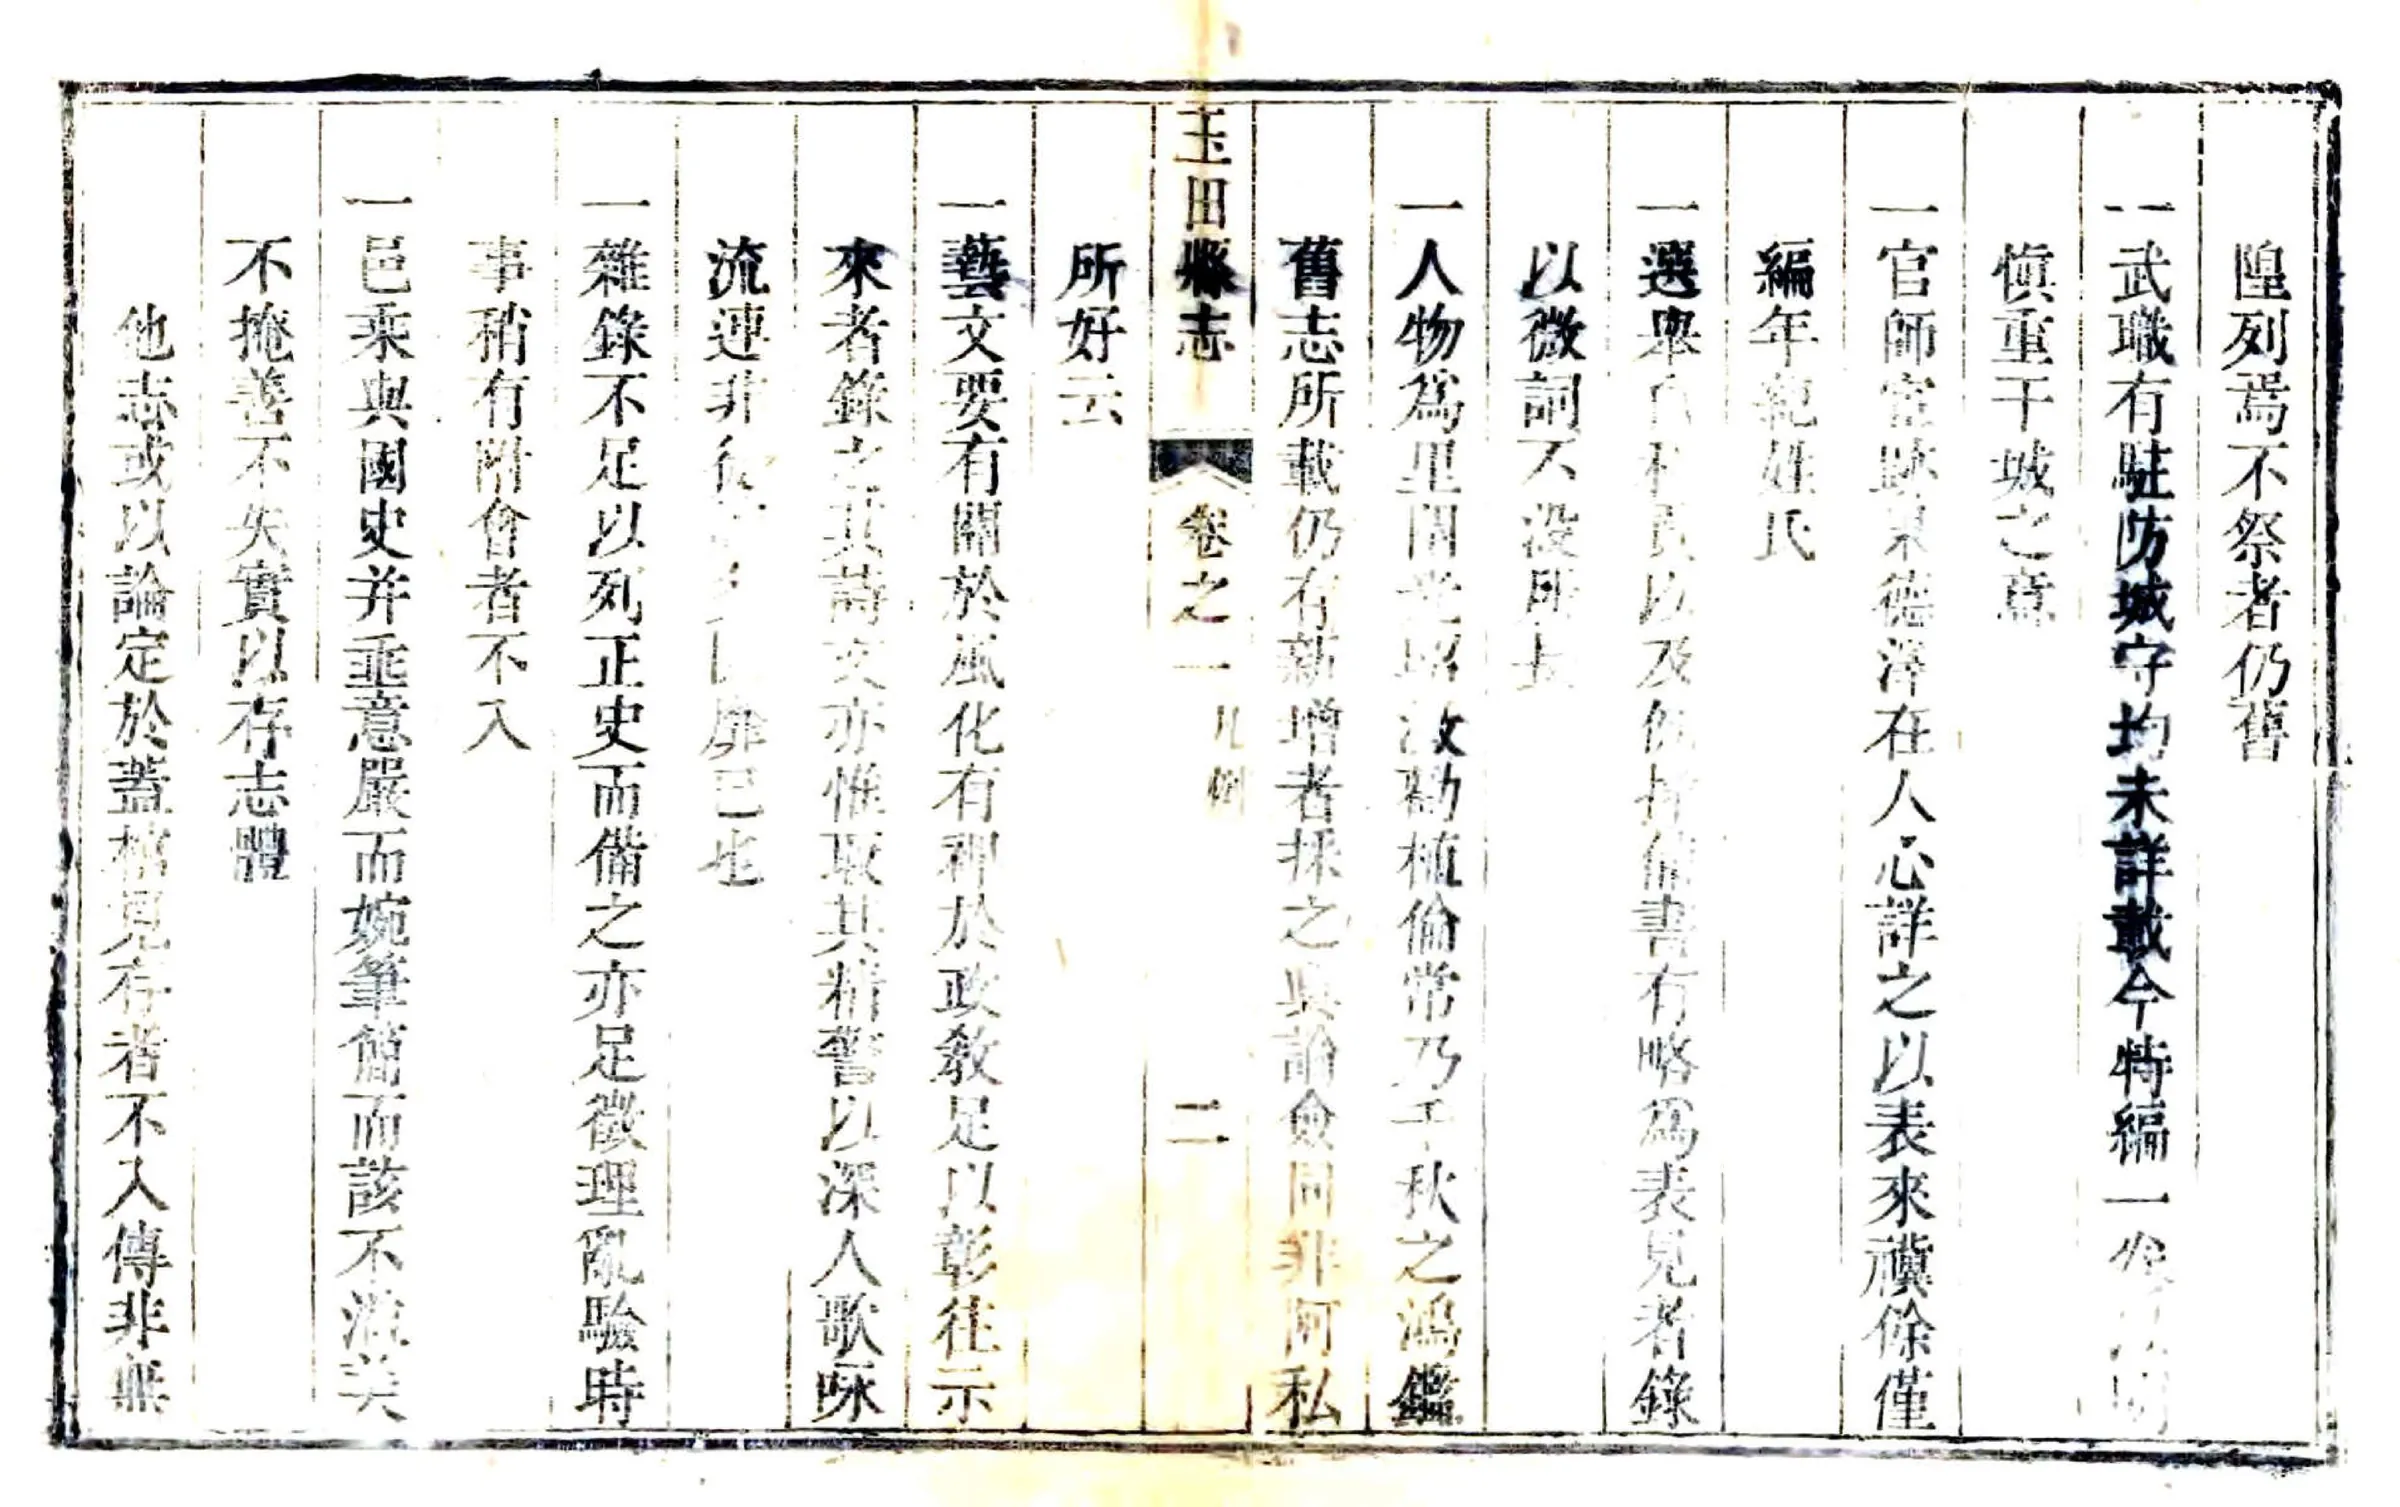 隍列焉不祭者仍舊
一武職有駐防城守均未詳載今特編一
慎重干城之意
一官師宦跡東德澤在人心詳之以表來禩餘僅
編年紀姓氏
一選舉自科貢以及例捐備書有略為表見者錄
以微詞不没所長
一人物為里閈光昭激勸植倫常乃千秋之鴻鑑
舊志所載仍有新增者採之輿論僉同非阿私
所好云
玉田縣志 卷之一 凡例 二
一藝文要有關於風化有裨於政教足以彰往示
來者錄之其詩文亦惟取其精警以深人歌咏
流連非徒 廓已也
一雜錄不足以列正史而備之亦足徵理亂驗時
事稍有附會者不入
一邑乘與國史并垂意嚴而婉筆簡而該不溢美
不掩善不失實以存志體
他志或以論定於蓋棺見存者不入傳非無